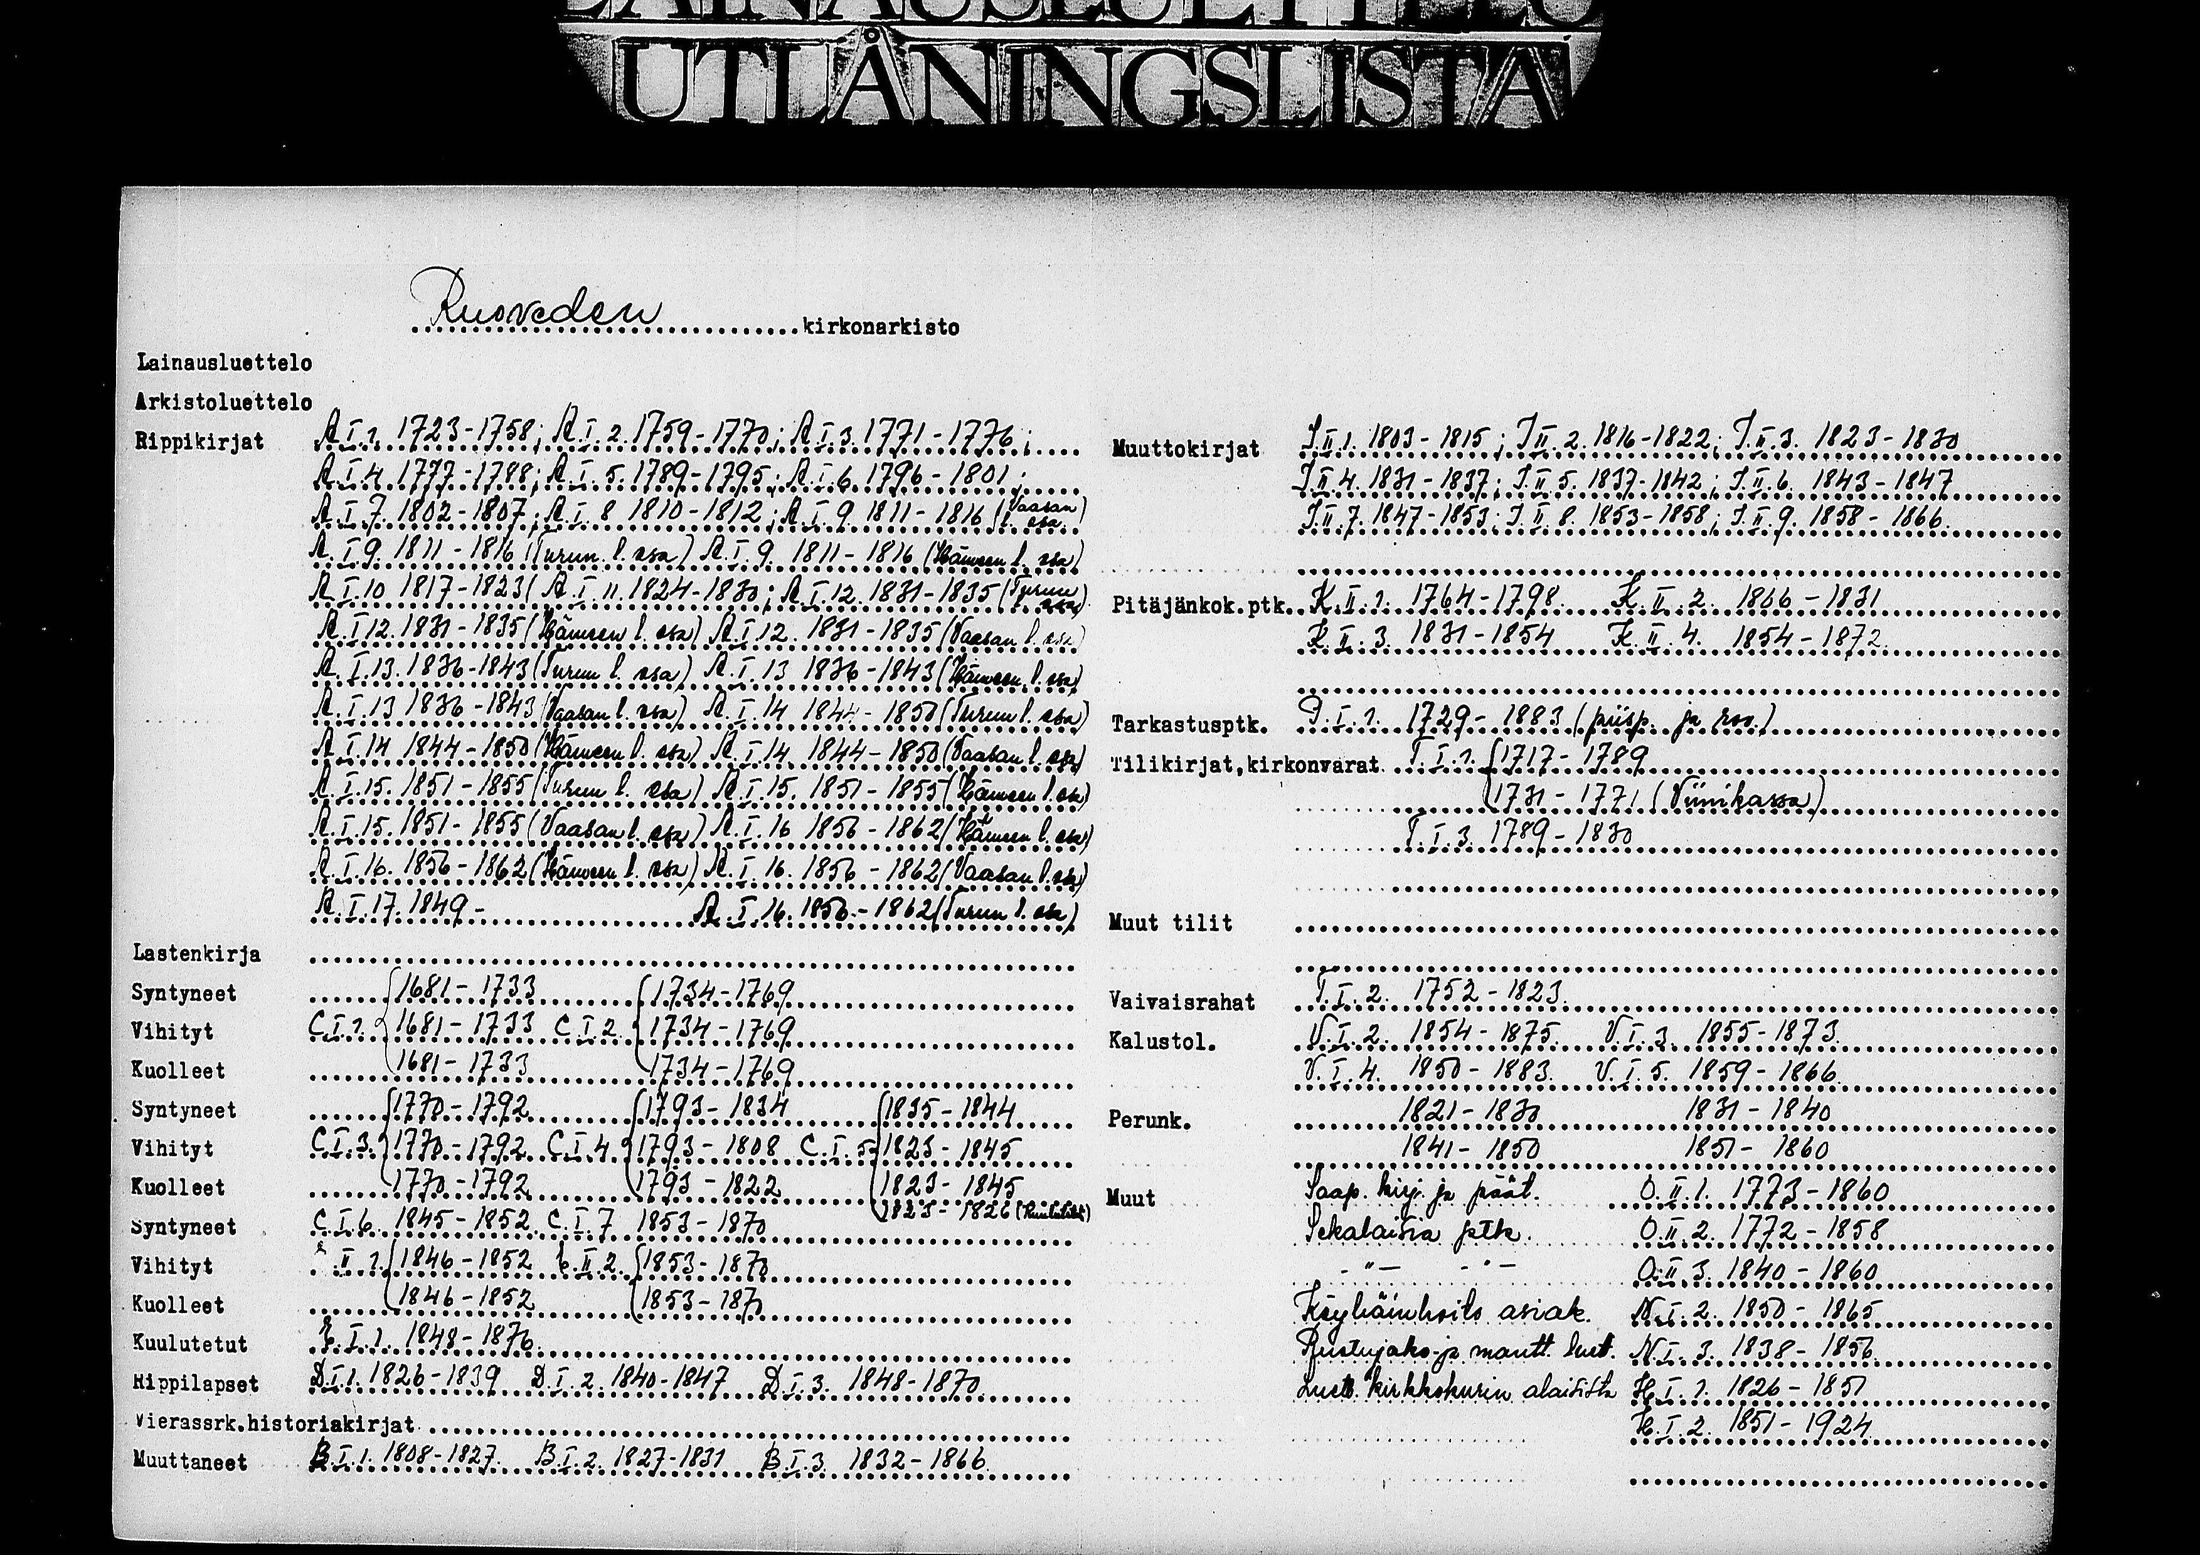 LAINAUSLUETTELO
UTLÅNINGSLISTA
Ruoveden kirkonarkisto
Lainausluettelo
Arkistoluettelo
Rippikirjat A.I.1. 1723-1758; A.I.2. 1759-1770; A.I.3. 1771-1776;
A.I.4. 1777-1788; A.I.5. 1789-1795; A.I.6. 1796-1801;
A.I.7. 1802-1807; A.I.8 1810-1812; A.I.9. 1811-1816 (Vaasan l. osa)
A.I.9. 1811-1816 (Turun l. osa) A.I.9. 1811-1816 (Hämeen l. osa)
A.I.10 1817-1823( A.I.11. 1824-1830; A.I.12. 1831-1835 (Turun l. osa)
A.I.12. 1831-1835 (Hämeen l. osa) A.I.12. 1831-1835 (Vaasan l. osa)
A.I.13. 1836-1843 (Turun l. osa) A.I.13 1836-1843 (Hämeen l. osa)
A.I.13 1836-1843 (Vaasan l. osa) A.I.14 1844-1850 (Turun l. osa)
A.I.14 1844-1850 (Hämeen l. osa) A.I.14. 1844-1850 (Vaasan l. osa)
A.I.15. 1851-1855 (Turun l. osa) A.I.15. 1851-1855 (Hämeen l. osa)
A.I.15. 1851-1855 (Vaasan l. osa) A.I.16 1856-1862 (Hämeen l. osa)
A.I.16. 1856-1862 (Hämeen l. osa) A.I.16. 1856-1862 (Vaasan l. osa)
A.I.17. 1849- A.I.16. 1856-1862 (Turun l. osa)
Lastenkirja
Syntyneet 1681-1733 1734-1769
Vihityt C.I.1. 1681-1733 C.I.2. 1734-1769
Kuolleet 1681-1733 1734-1769
Syntyneet 1770-1792 1793-1834 1835-1844
Vihityt C.I.3. 1770-1792 C.I.4. 1793-1808 C.I.5. 1823-1845
Kuolleet 1770-1792 1793-1822 1823-1845
1823-1826
Syntyneet C.I.6. 1845-1852 C.I.7 1853-1870
Vihityt II.1. 1846-1852 II.2. 1853-1870
Kuolleet 1846-1852 1853-187
Kuulutetut E.I.1. 1848-1876
Rippilapset D.I.1. 1826-1839 D.I.2. 1840-1847 D.I.3. 1848-1870
Vierassrk.historiakirjat
Muuttaneet B.I.1. 1808-1827. B.I.2. 1827-1831 B.I.3 1832-1866
Muuttokirjat I.II.1. 1803-1815; I.II.2. 1816-1822; I.II.3. 1823-1830
I.II.4. 1831-1837; I.II.5. 1837-1842; I.II.6. 1843-1847
I.II.7. 1847-1853; I.II.8. 1853-1858; I.II.9. 1858-1866
Pitäjänkok.ptk. K.II.1. 1764-1798. K.II.2. 1866-1831
K.II.3. 1831-1854 K.II.4. 1854-1872
Tarkastusptk. I.I.1. 1729-1883 (piisp. ja rov.)
Tilikirjat,kirkonvarat T.I.1. 1717-1789
1731-1771 (Viinikassa)
T.I.3. 1789-1830
Muut tilit
Vaivaisrahat T.I.2. 1752-1823
Kalustol. V.I.2. 1854-1875. V.I.3. 1855-1873.
V.I.4. 1850-1883. V.I.5. 1859-1866
Perunk. 1821-1830 1831-1840
1841-1850 1851-1860
Muut Saap. kirj. ja päät. O.II.1. 1773-1860
Sekalaisia ptk. O.II.2. 1772-1858
-"- -"- O.II.3. 1840-1860
Köyhäinhoito asiak. N.I.2. 1850-1865
Ruotujako- ja mantt. luet. N.I.3. 1838-1856
Luett. kirkkokurin alaisista H.I.1. 1826-1851
H.I.2. 1851-1924